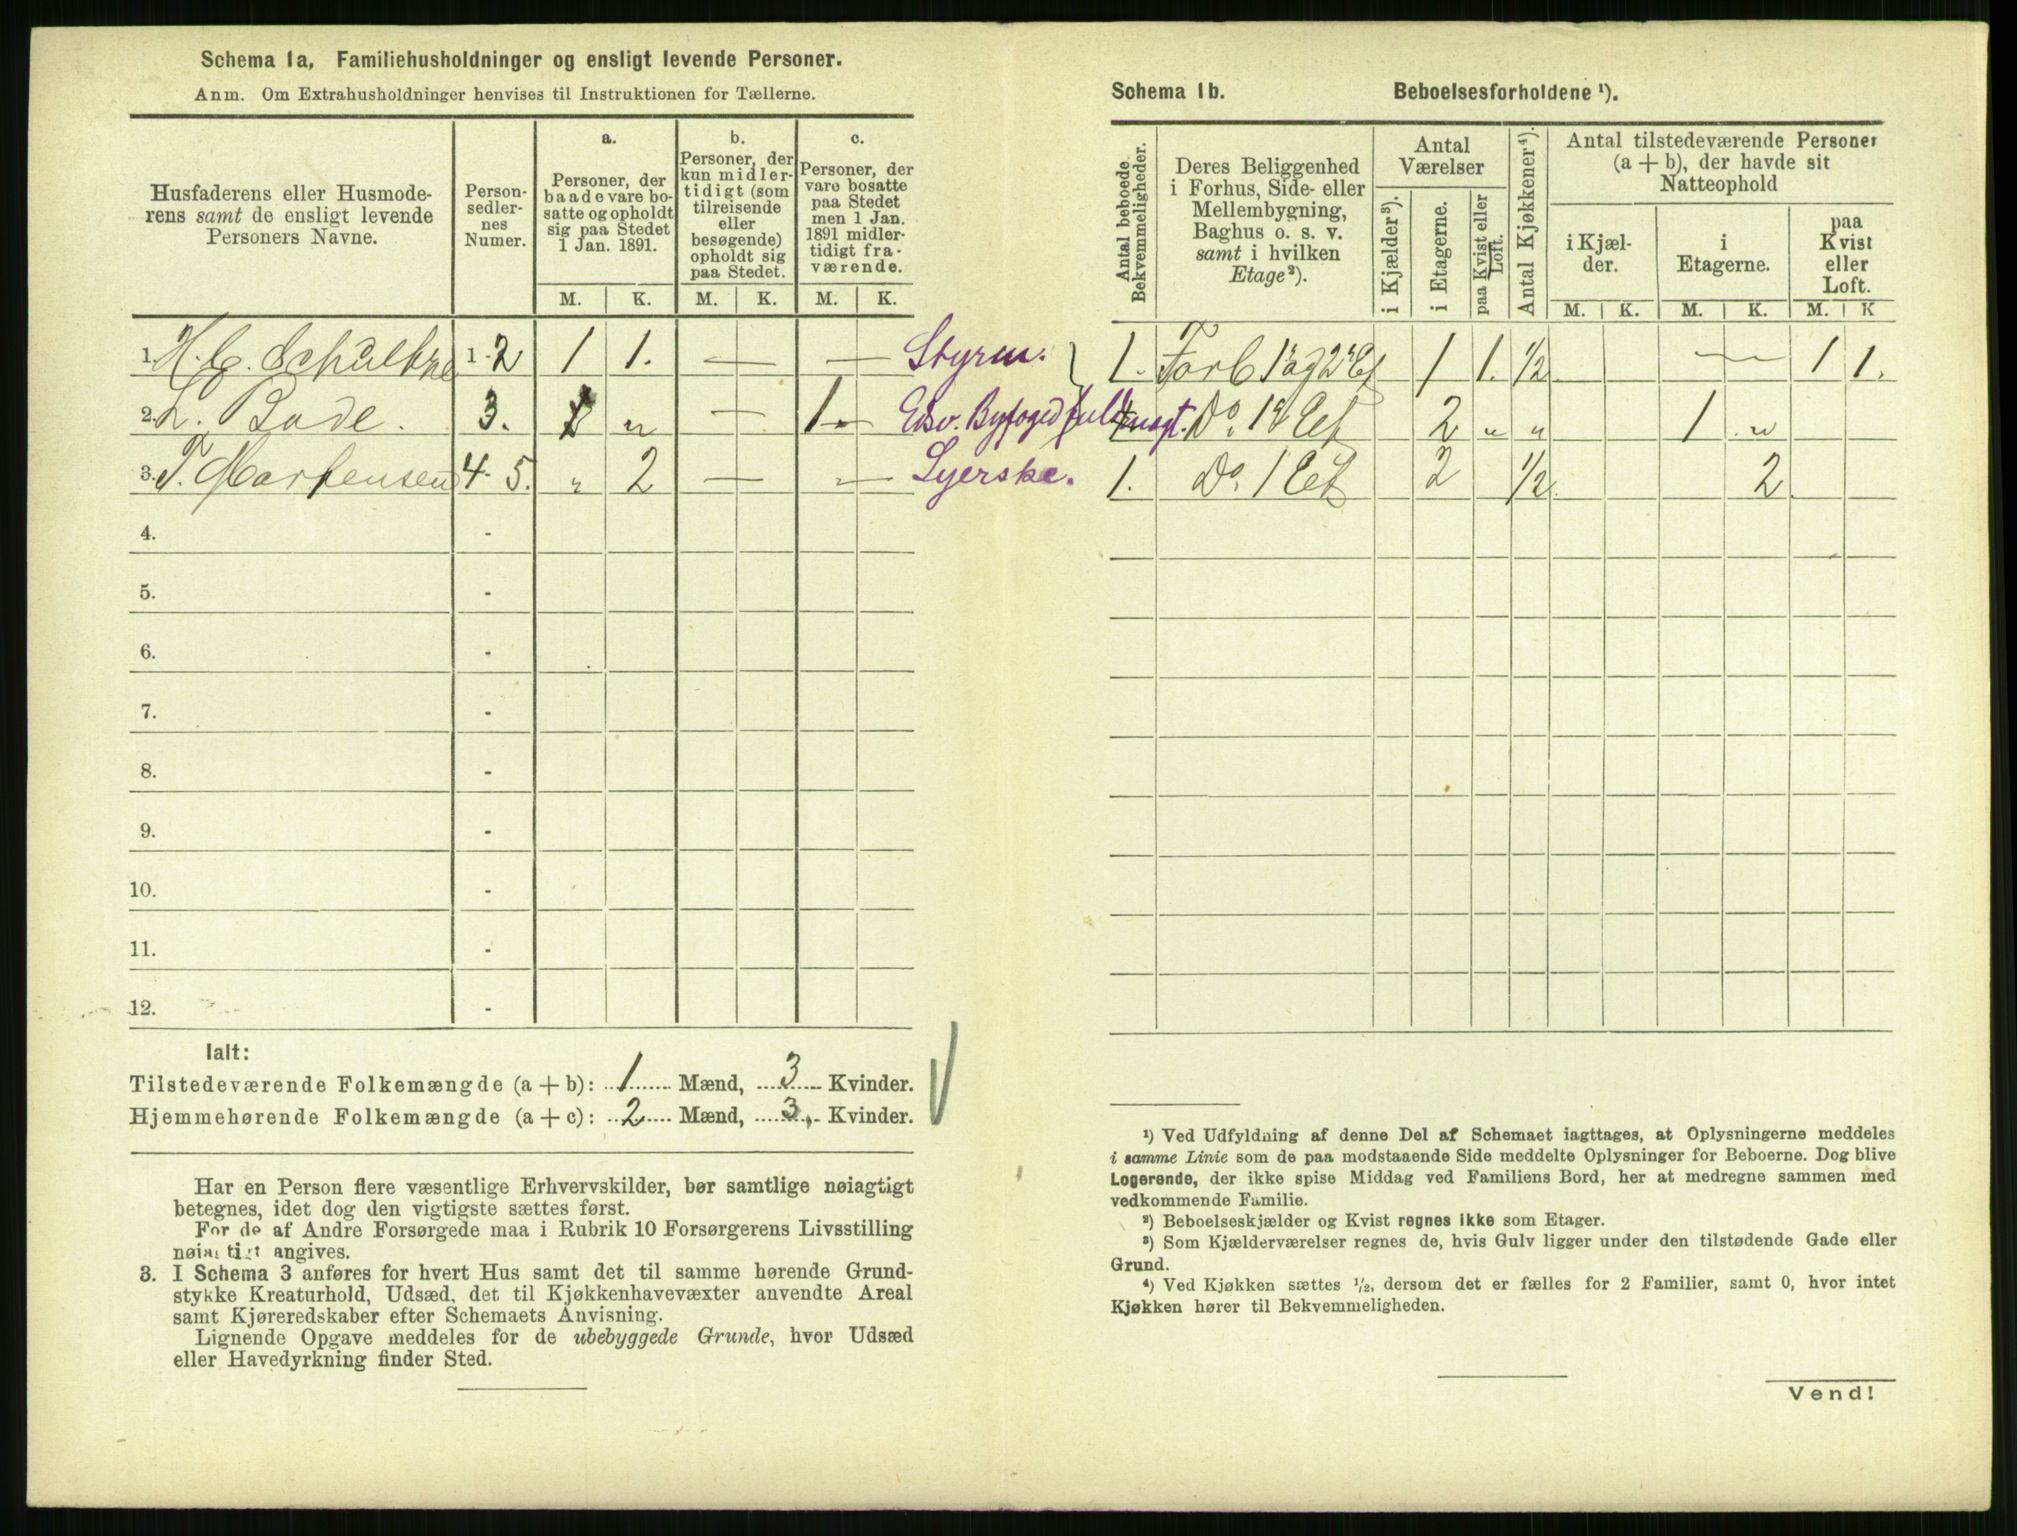 Schema 1a, Familiehusholdninger og ensligt levende Personer.
Anm. Om Extrahusholdninger henvises til Instruktionen for Tællerne.
Husfaderens eller Husmode-
rens samt de ensligt levende
Personers Navne.
Person-
sedler-
nes
Numer.
a.
Personer, der
baade vare bo-
satte og opholdt
sig paa Stedet
1 Jan. 1891.
b.
Personer, der
kun midler-
tidigt (som
tilreisende
eller
besøgende)
opholdt sig
paa Stedet.
c.
Personer, der
vare bosatte
paa Stedet
men 1 Jan.
1891 midler-
tidigt fra-
værende.
M. K. M. K. M. K.
1. H. C. 1 - 2 1 1. — — Styrm.
2. L. Bade. 3. „ — 1.
3. T. Martensen 4 - 5. „ 2 — „ Syerske.
4. -
5. -
6. -
7. -
8. -
9. -
10. -
11. -
12. -
Ialt:
Tilstedeværende Folkemængde (a + b): 1 Mænd, 3 Kvinder.
Hjemmehørende Folkemængde (a + c): 2 Mænd, 3. Kvinder.
Har en Person flere væsentlige Erhvervskilder, bør samtlige nøiagtigt
betegnes, idet dog den vigtigste sættes først.
For de af Andre Forsørgede maa i Rubrik 10 Forsørgerens Livsstilling
nøiagtigt angives.
3. I Schema 3 anføres for hvert Hus samt det til samme hørende Grund-
stykke Kreaturhold, Udsæd, det til Kjøkkenhavevæxter anvendte Areal
samt Kjøreredskaber efter Schemaets Anvisning.
Lignende Opgave meddeles for de ubebyggede Grunde, hvor Udsæd
eller Havedyrkning finder Sted.
Schema 1b. Beboelsesforholdene ¹).
Antal beboede
Bekvemmeligheder.
Deres Beliggenhed
i Forhus, Side- eller
Mellembygning,
Baghus o. s. v.
samt i hvilken
Etage²).
Antal
Værelser
i Kjælder³).
i Etagerne.
paa Kvist eller
Loft.
Antal Kjøkkener⁴).
Antal tilstedeværende Personer
(a + b), der havde sit
Natteophold
i Kjæl-
der.
i
Etagerne.
paa
Kvist
eller
Loft.
M. K. M. K. M. K
1. 1 1. ½ — 1 1.
Do. 1 Et 2 „ „ 1 „
1. Do. 1 Et 2 ½ 2
¹) Ved Udfyldning af denne Del af Schemaet iagttages, at Oplysningerne meddeles
i samme Linie som de paa modstaaende Side meddelte Oplysninger for Beboerne. Dog blive
Logerende, der ikke spise Middag ved Familiens Bord, her at medregne sammen med
vedkommende Familie.
²) Beboelseskjælder og Kvist regnes ikke som Etager.
³) Som Kjælderværelser regnes de, hvis Gulv ligger under den tilstødende Gade eller
Grund.
⁴) Ved Kjøkken sættes ½, dersom det er fælles for 2 Familier, samt 0, hvor intet
Kjøkken hører til Bekvemmeligheden.
Vend!